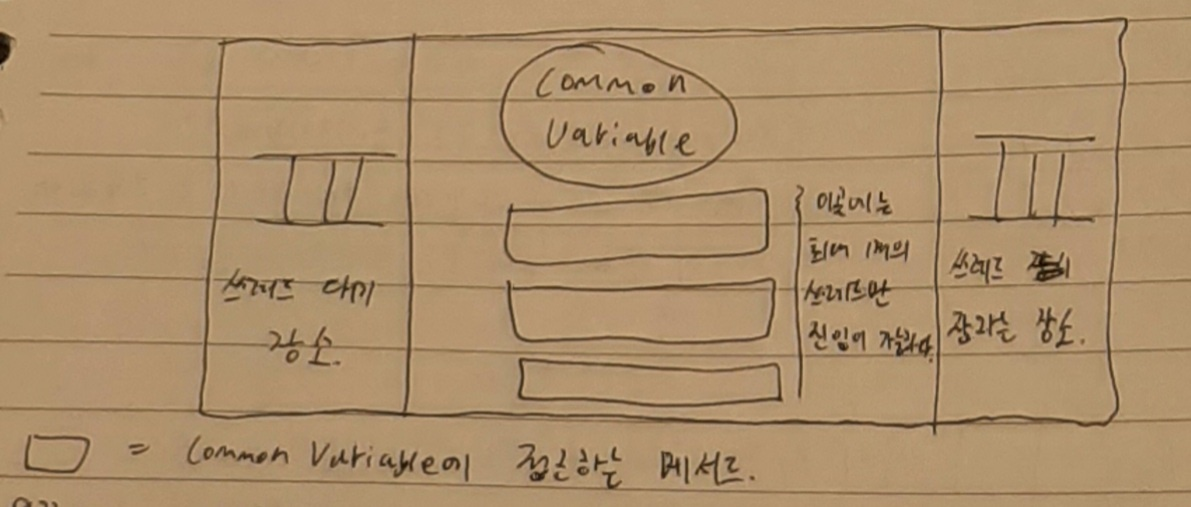 Common
Variable
쓰레드 대기
장소.
이곳에는
최대 1개의
쓰레드만
진입이 가능하다.
쓰레드
잠자는 장소.
= Common Variable에 접근하는 메서드.